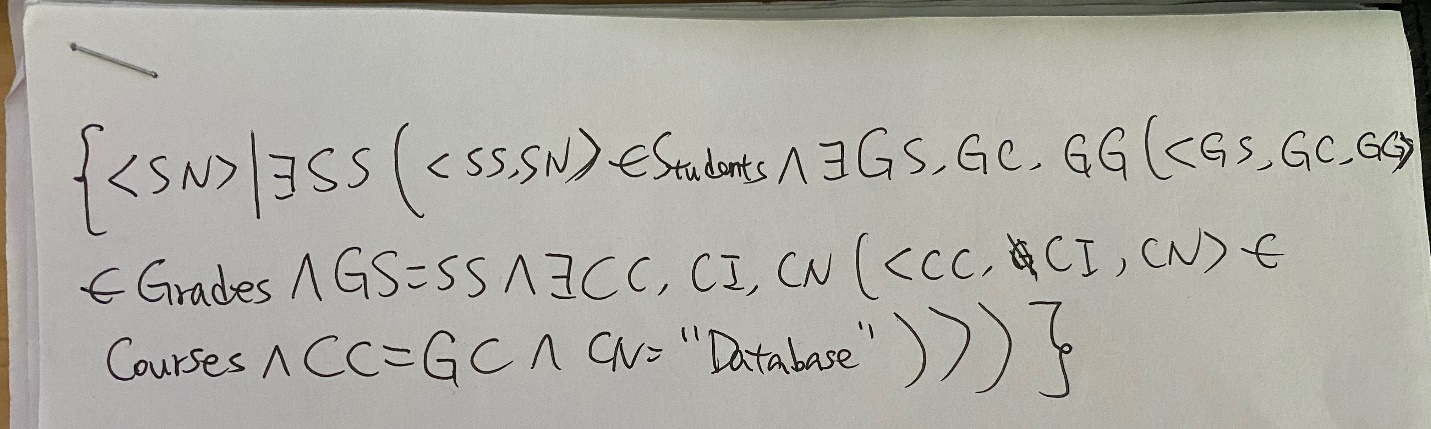 {<SN>|∃SS(<SS,SN>∈Students∧∃GS,GC,GG(<GS,GC,GG>
∈Grades∧GS=SS∧∃CC,CI,CN(<CC,CI,CN>∈
Courses∧CC=GC∧CN="Database")))}